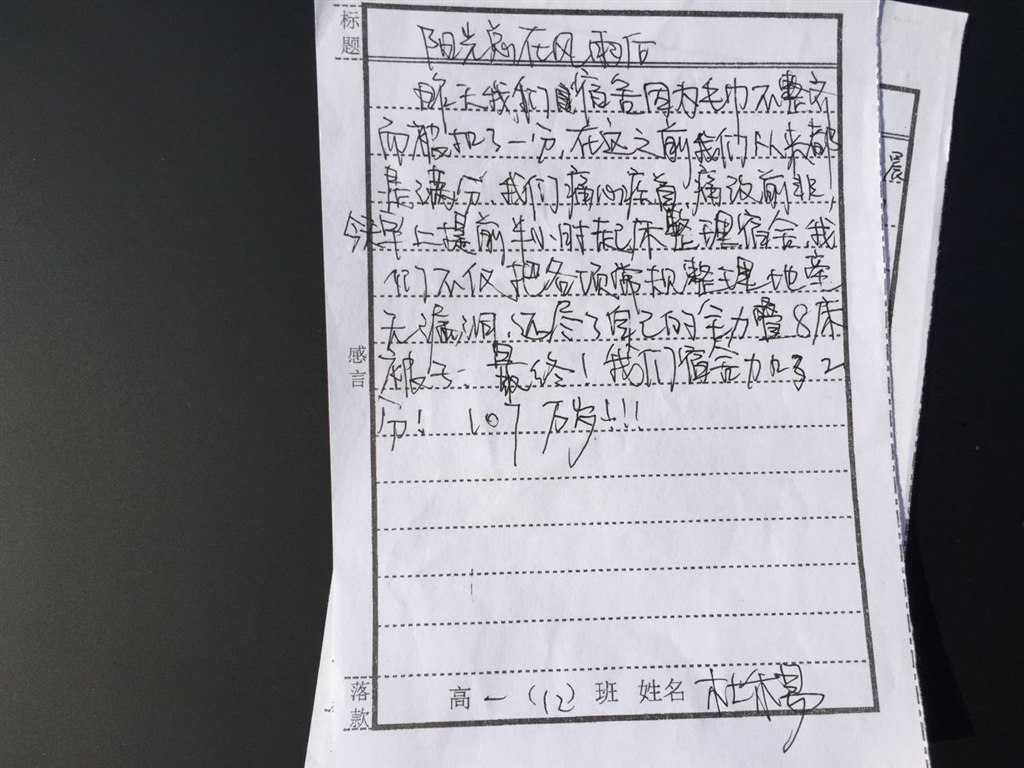 标题
阳光总在风雨后
昨天我们宿舍因为毛巾不整齐
而被扣了一分,在这之前我们从来都
是满分,我们痛心疾首,痛改前非,
今天早上提前半小时起床整理宿舍,我
们不仅把各项常规整理地毫
无漏洞,还尽了自己的全力叠8床
被子.最终!我们宿舍加了2
分! 107万岁!!!
感言
落款
高一(12)班 姓名 杜
晨